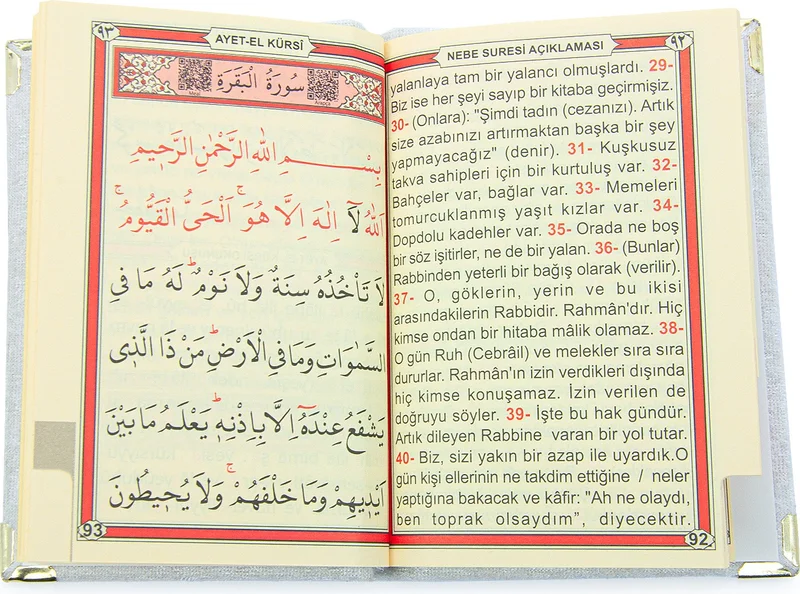 ٩٢
NEBE SURESİ AÇIKLAMASI
yalanlaya tam bir yalancı olmuşlardı. 29-
Biz ise her şeyi sayıp bir kitaba geçirmişiz.
30- (Onlara): "Şimdi tadın (cezanızı). Artık
size azabınızı artırmaktan başka bir şey
yapmayacağız" (denir). 31- Kuşkusuz
takva sahipleri için bir kurtuluş var. 32-
Bahçeler var, bağlar var. 33- Memeleri
tomurcuklanmış yaşıt kızlar var. 34-
Dopdolu kadehler var. 35- Orada ne boş
bir söz işitirler, ne de bir yalan. 36- (Bunlar)
Rabbinden yeterli bir bağış olarak (verilir).
37- O, göklerin, yerin ve bu ikisi
arasındakilerin Rabbidir. Rahmân'dır. Hiç
kimse ondan bir hitaba mâlik olamaz. 38-
O gün Ruh (Cebrâil) ve melekler sıra sıra
dururlar. Rahmân'ın izin verdikleri dışında
hiç kimse konuşamaz. İzin verilen de
doğruyu söyler. 39- İşte bu hak gündür.
Artık dileyen Rabbine varan bir yol tutar.
40- Biz, sizi yakın bir azap ile uyardık.O
gün kişi ellerinin ne takdim ettiğine / neler
yaptığına bakacak ve kâfir: "Ah ne olaydı,
ben toprak olsaydım", diyecektir.
92
٩٣
AYET-EL KÜRSİ
سُورَةُ الْبَقَرَةِ
بِسْمِ اللهِ الرَّحْمٰنِ الرَّحٖيمِ
اَللهُ لَٓا اِلٰهَ اِلَّا هُوَۚ اَلْحَيُّ الْقَيُّومُۚ
لَا تَأْخُذُهُ سِنَةٌ وَلَا نَوْمٌؕ لَهُ مَا فِي
السَّمٰوَاتِ وَمَا فِي الْاَرْضِؕ مَنْ ذَا الَّذٖى
يَشْفَعُ عِنْدَهُٓ اِلَّا بِاِذْنِهٖؕ يَعْلَمُ مَا بَيْنَ
اَيْدٖيهِمْ وَمَا خَلْفَهُمْۚ وَلَا يُحٖيطُونَ
93